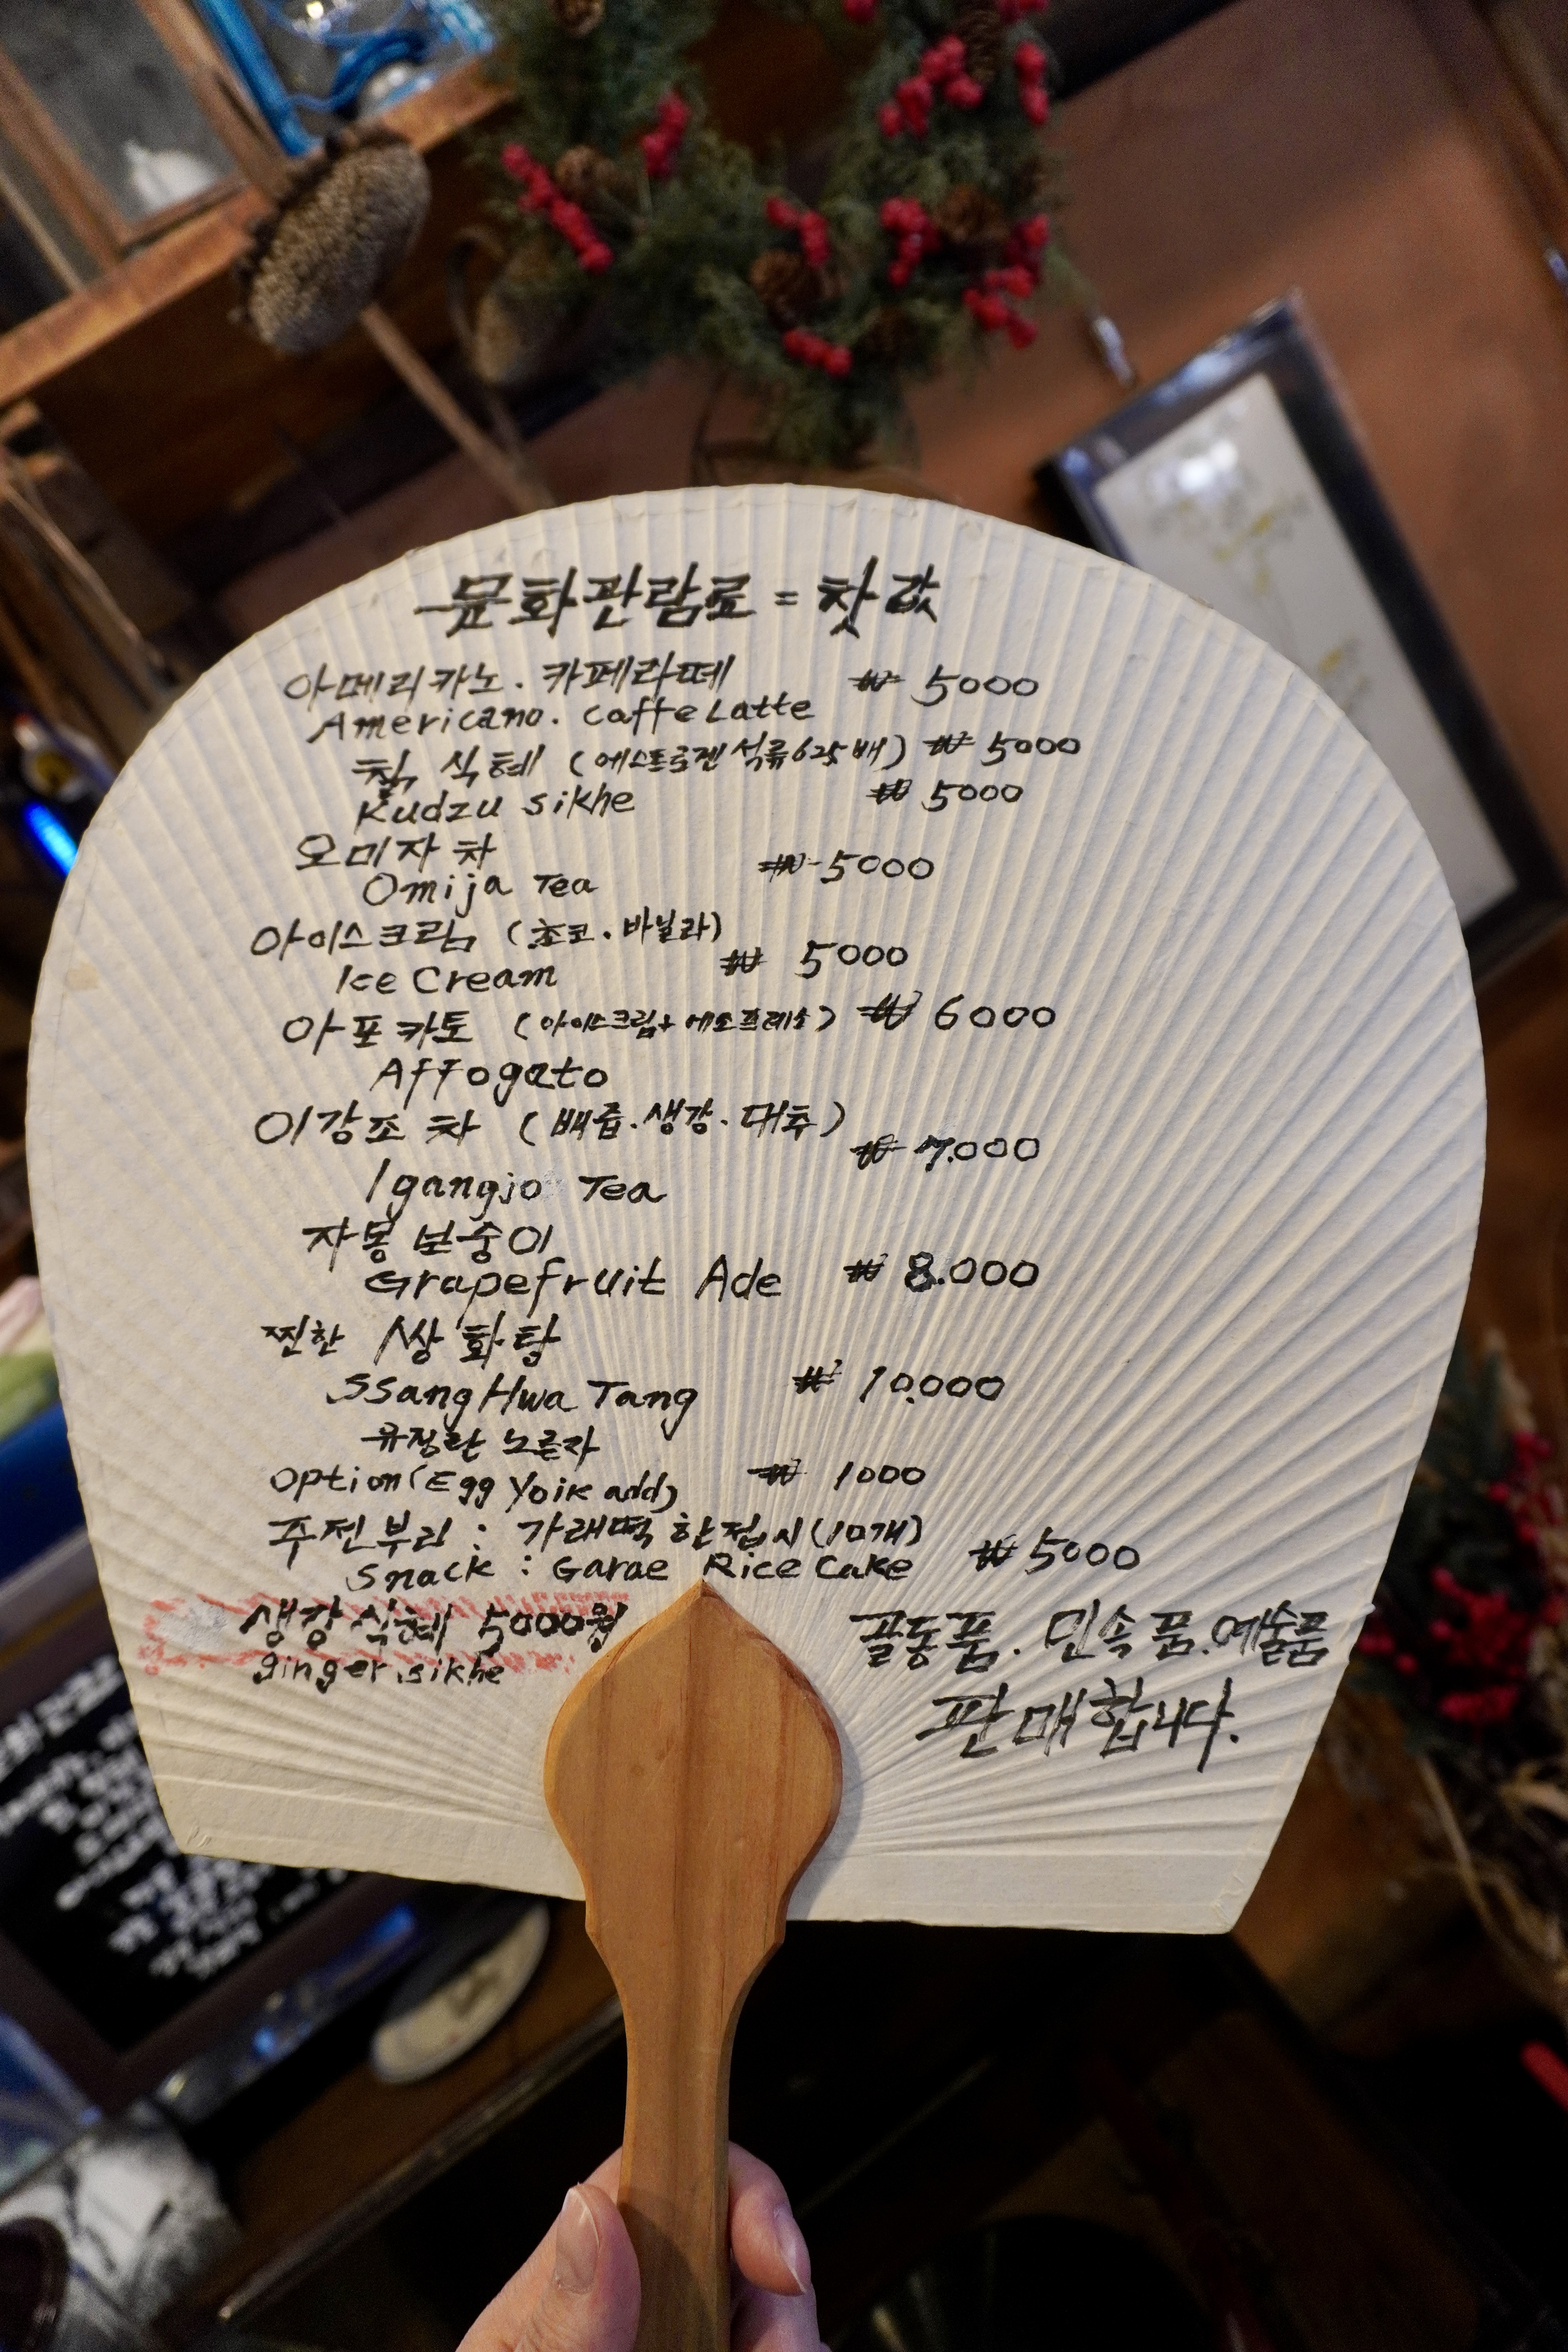 문화관람료 = 찻값
아메리카노. 카페라떼 ₩ 5000
Americano. Caffe Latte
칡 식혜 (에스트로겐 석류625배) ₩ 5000
Kudzu sikhe ₩ 5000
오미자 차
Omija Tea ₩ 5000
아이스크림 (초코.바닐라)
Ice Cream ₩ 5000
아포카토 (아이스크림+에소프레소) ₩ 6000
Affogato
이강조 차 (배즙.생강.대추)
₩ 7.000
Igangjo Tea
자몽 보숭이
Grapefruit Ade ₩ 8.000
찐한 쌍화탕
SsangHwa Tang ₩ 10.000
유정란 노른자
Option(Egg Yolk add) ₩ 1000
주전부리 : 가래떡 한접시(10개)
Snack : Garae Rice Cake ₩ 5000
생강 식혜 5000원
ginger sikhe
골동품. 민속품.예술품
판매합니다.